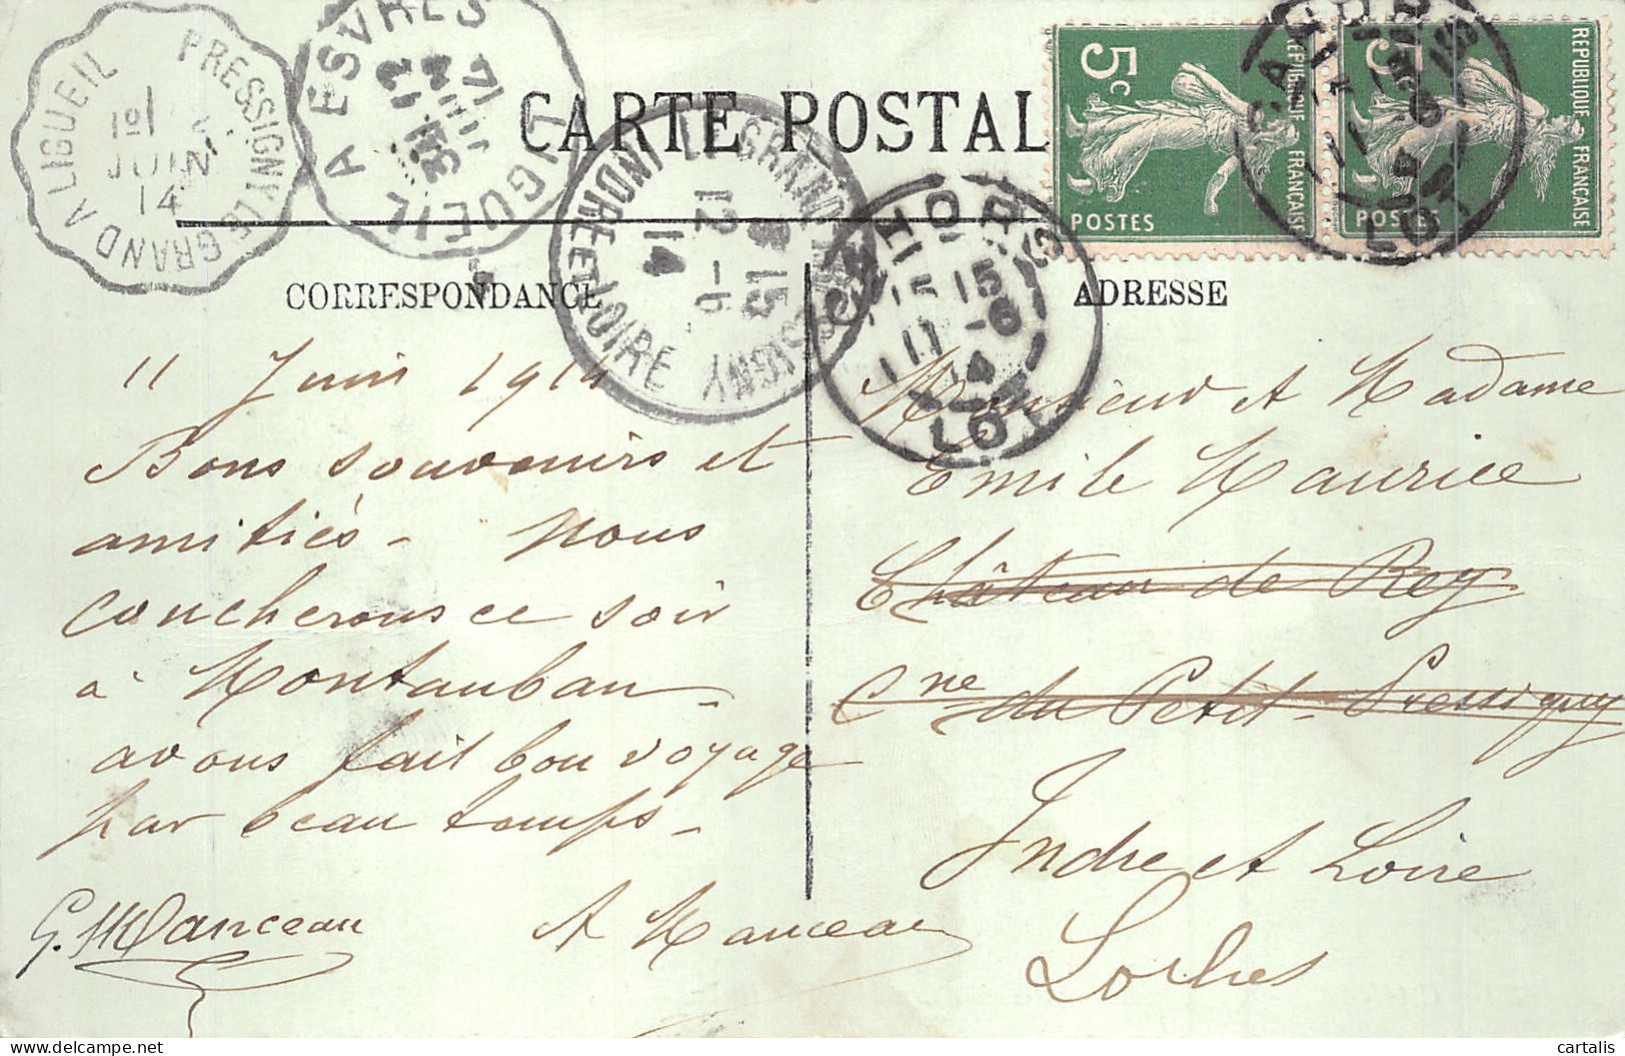 CARTE POSTALE
CORRESPONDANCE
ADRESSE
11 Juin 1914
Bons souvenirs et
amitiés - Nous
coucherons ce soir
à Montauban -
avons fait bon voyage
par beau temps -
G. Manceau
A Manceau
Monsieur et Madame
Emile Maurice
Château de Rey
Cne du Petit-Pressigny
Indre et Loire
Loches
5c
REPUBLIQUE FRANÇAISE
POSTES
5c
REPUBLIQUE FRANÇAISE
POSTES
PRESSIGNY LE GRAND A LIGUEIL
JUIN
14
ESVRES A LIGUEIL
LE GRAND PRESSIGNY
INDRE ET LOIRE
15
12 - 6
14
CAHORS
LOT
CAHORS
LOT
cartalis